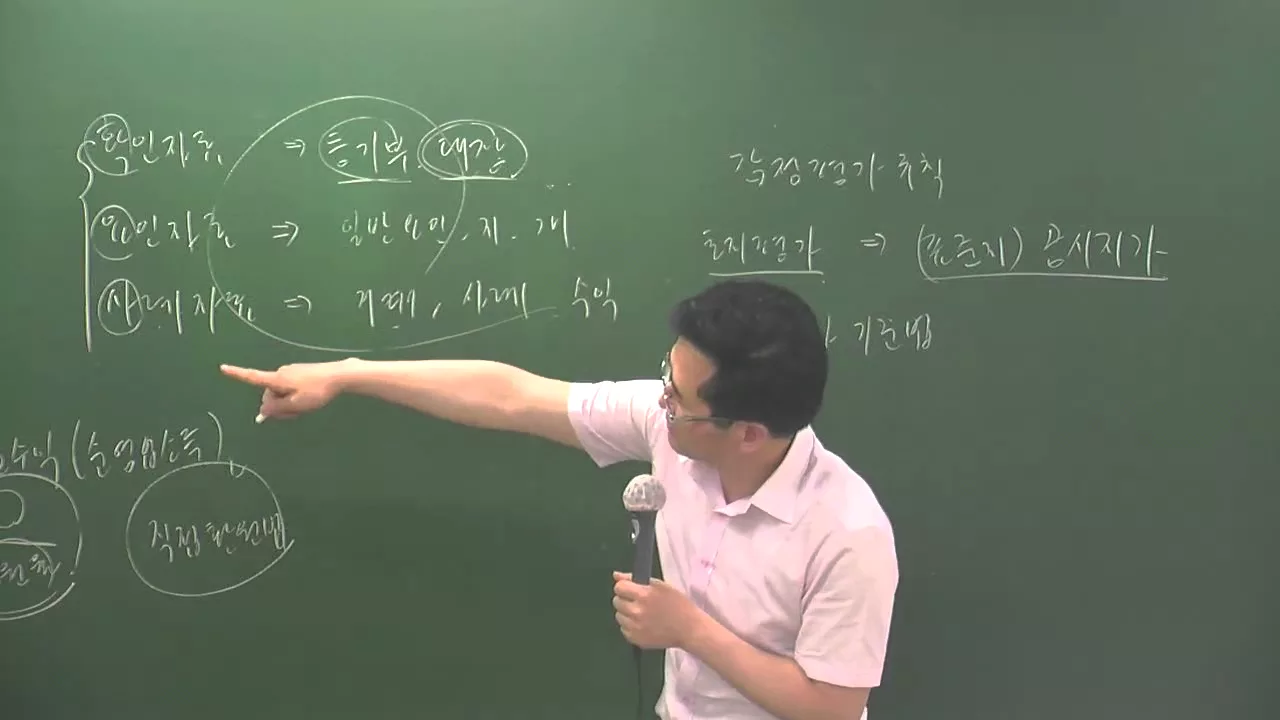 확인자료 ⇒ 등기부. 대장
요인자료 ⇒ 일반요인. 지. 개
사례자료 ⇒ 거래, 사례 수익
수익 (순영업소득)
직접환원법
감정평가 규칙
토지평가 ⇒ (표준지) 공시지가
기준법